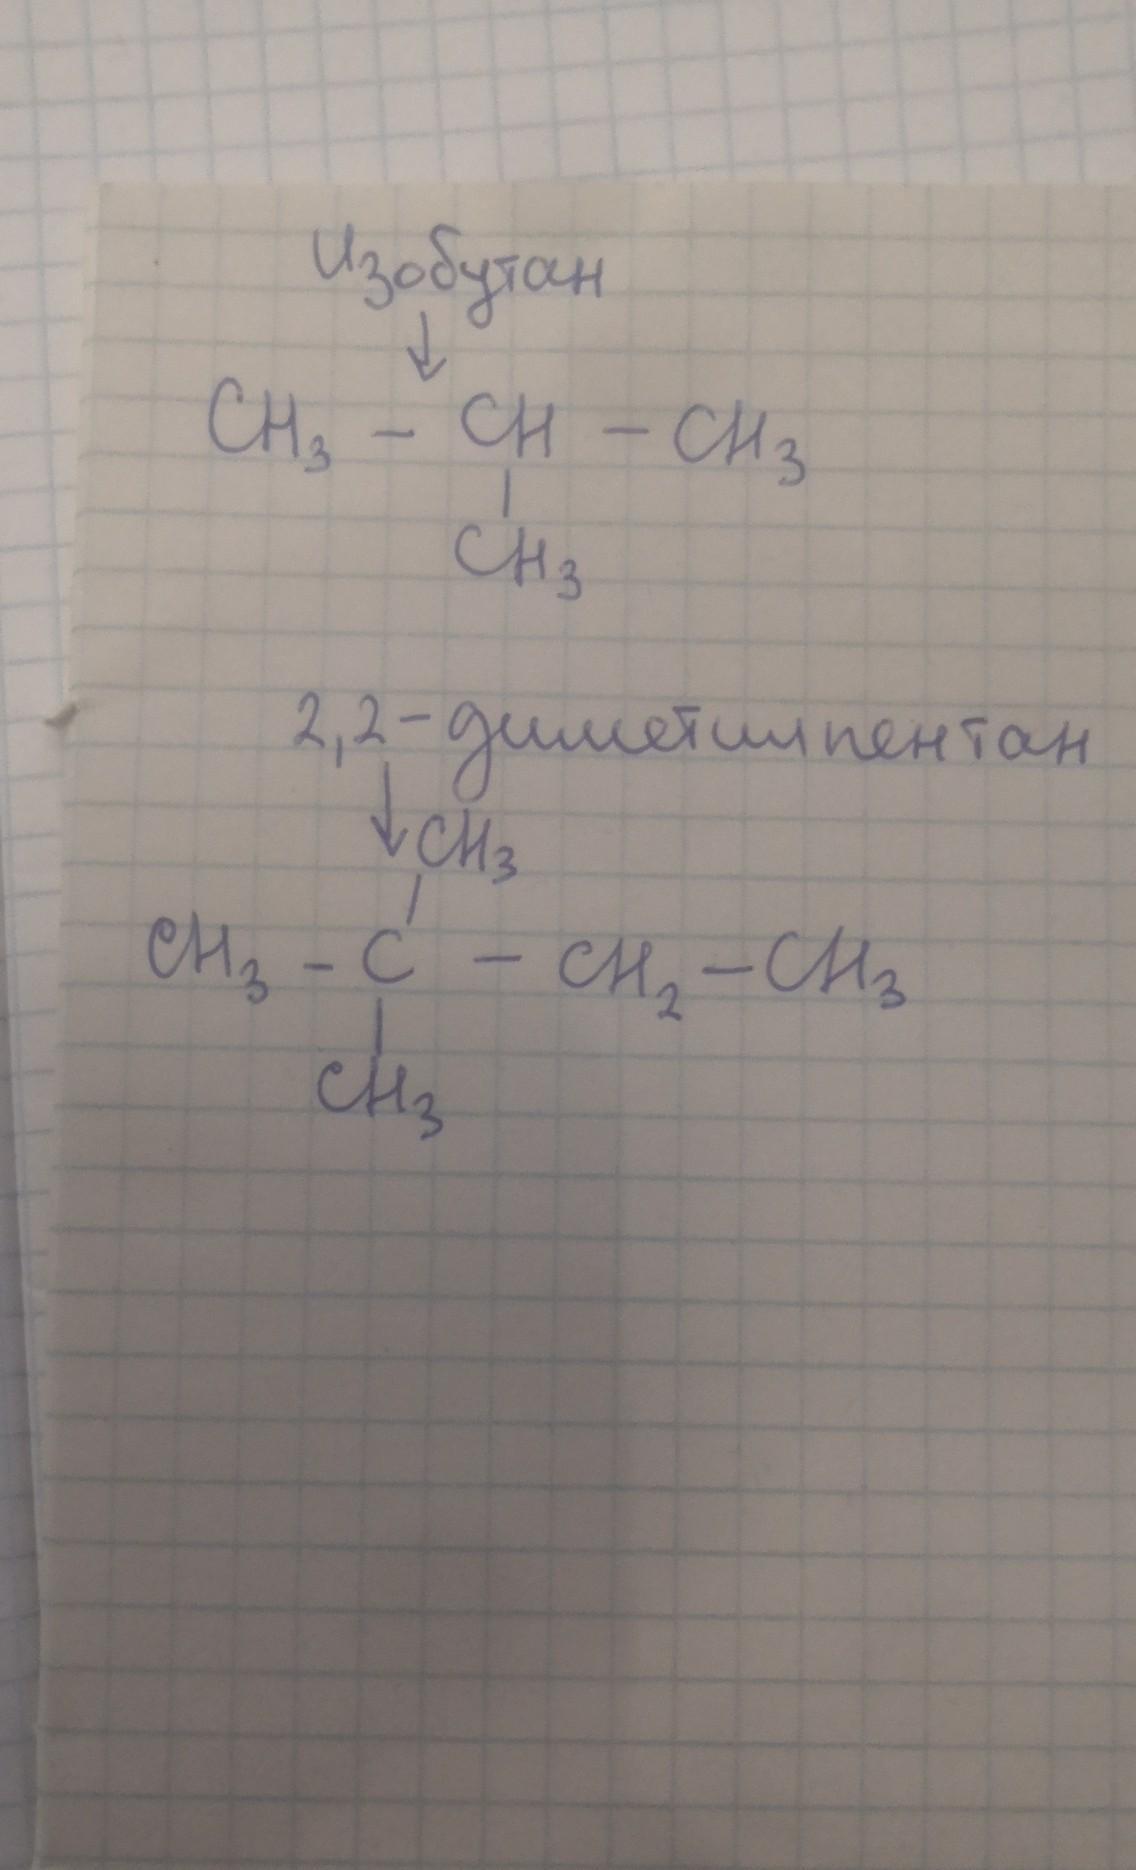 Изобутан
↓
CH₃ - CH - CH₃
|
CH₃
2,2-диметилпентан
↓ CH₃
/
CH₃ - C - CH₂ - CH₃
|
CH₃